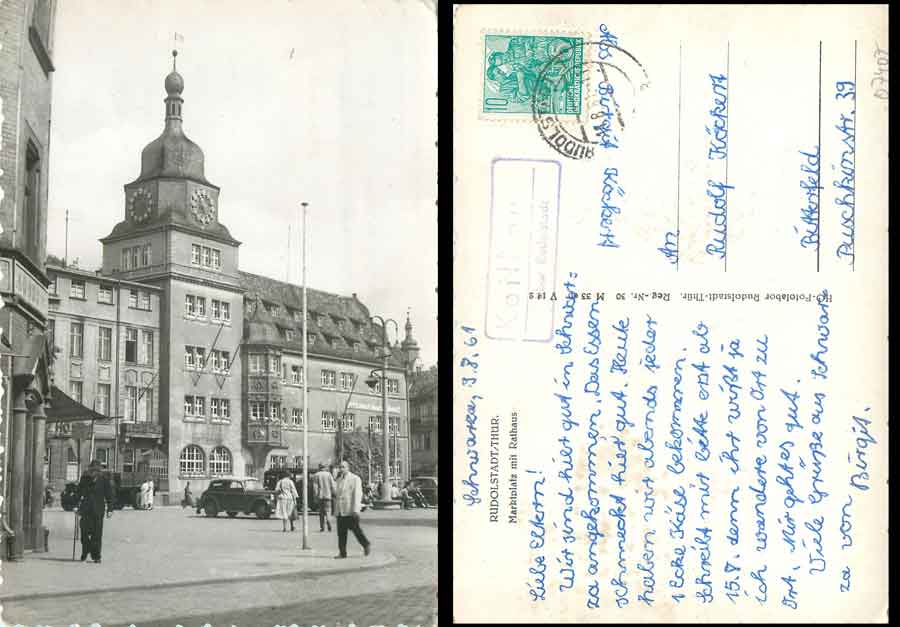 RUDOLSTADT/THÜR.
Marktplatz mit Rathaus
Schwarza, 3.8.61
Liebe Eltern!
Wir sind hier gut in Schwar=
za angekommen. Das Essen
schmeckt hier gut. Heute
haben wir abends jeder
1 Ecke Käse bekommen.
Schreibt mir bitte erst ab
15.8. denn ihr wißt ja
ich wandere von Ort zu
Ort. Mir geht es gut.
Viele Grüße aus Schwar=
za von Birgit.
HO-Fotolabor Rudolstadt-Thür. Reg-Nr. 30 M 35 V 14 2
10
DEUTSCHE
DEMOKRATISCHE REPUBLIK
RUDOLSTADT
Abs. Birgit Köckert
An
Rudolf Köckert
Bitterfeld
Puschkinstr. 39
07407